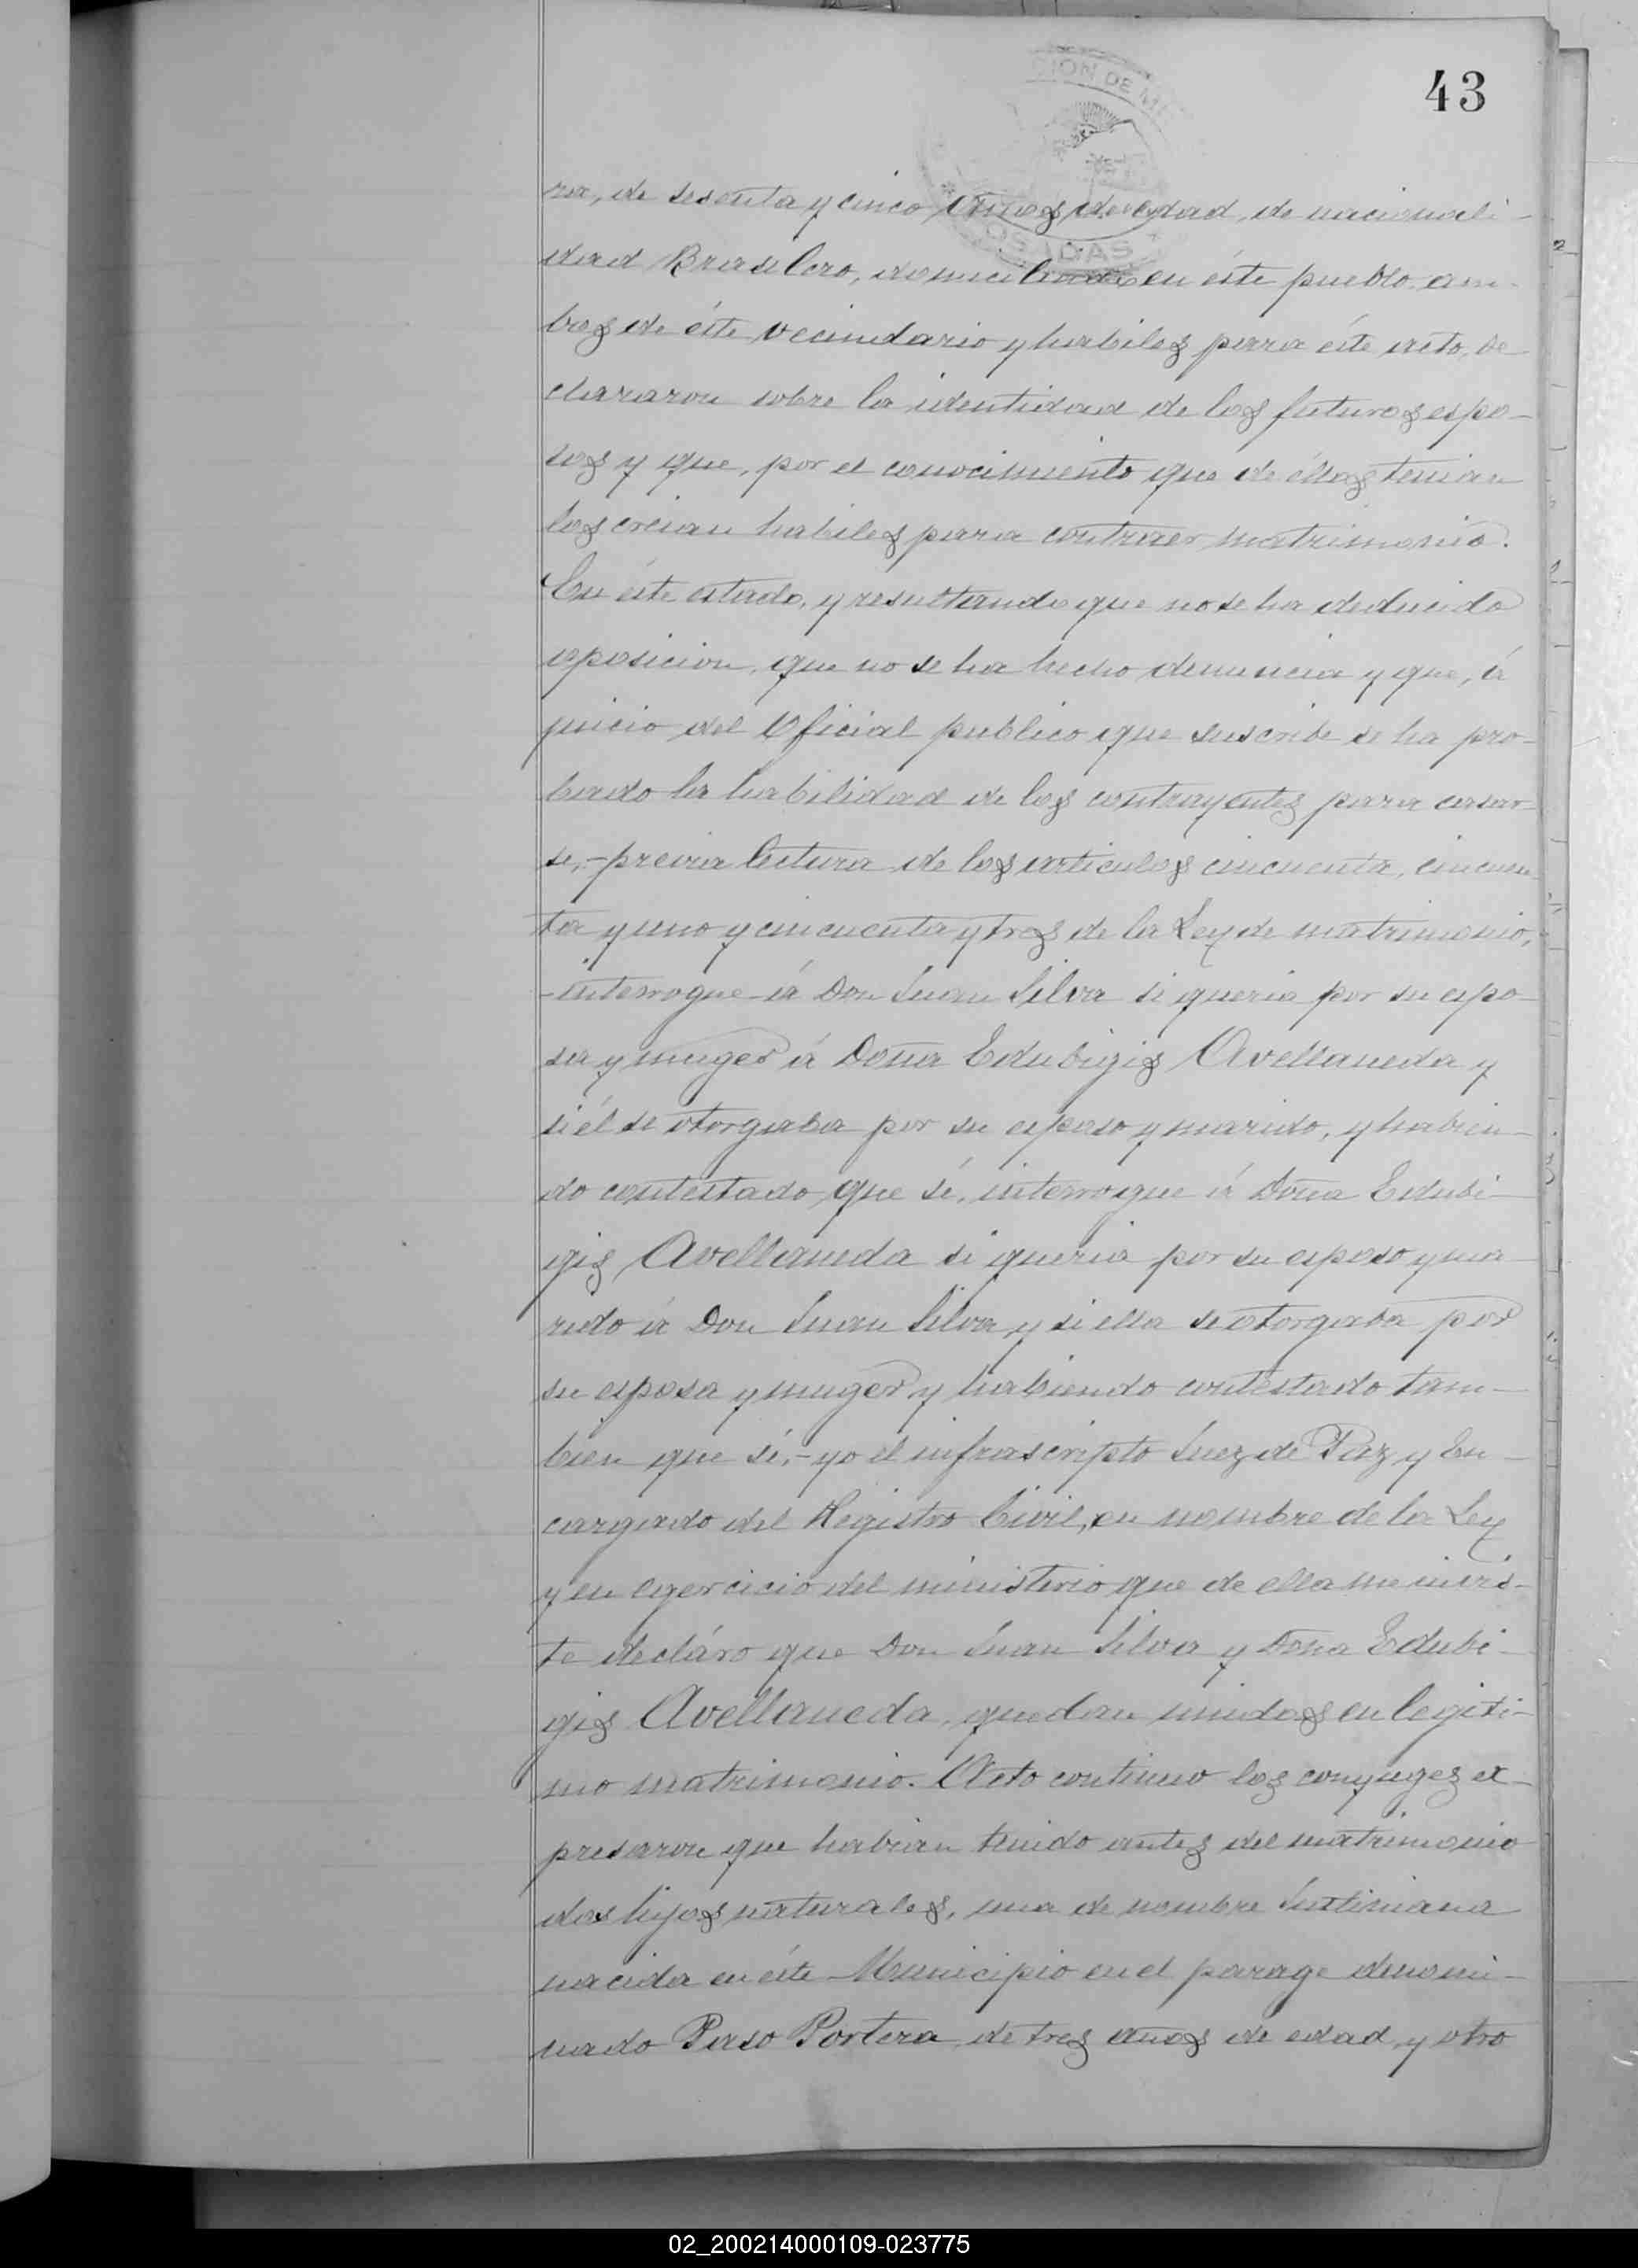 43
CION DE MI
OSADAS
ra, de sesenta y cinco años de edad, de nacionali-
dad Brasilero, domiciliado en éste pueblo, am-
bos de éste vecindario y habiles para éste acto, de-
clararon sobre la identidad de los futuros espo-
sos y que, por el conocimiento que de éllos tenian
los creian habiles para contraer matrimonio.
En éste estado, y resultando que no se ha deducido
oposicion, que no se ha hecho denuncia y que, á
juicio del Oficial publico que suscribe se ha pro-
bado la habilidad de los contrayentes para casar-
se,- previa lectura de los articulos cincuenta, cincuen-
ta y uno y cincuenta y tres de la Ley de matrimonio,
-interrogue- á Don Juan Silva si queria por su espo-
sa y muger á Doña Edubigis Avellaneda y
si él se otorgaba por su esposo y marido, y habien-
do contestado que sí, interrogue á Doña Edubi-
gis Avellaneda si queria por su esposo y ma-
rido á Don Juan Silva y si ella se otorgaba por
su esposa y muger y habiendo contestado tam-
bien que sí,- yo el infrascripto Juez de Paz y En-
cargado del Registro Civil, en nombre de la Ley
y en egercicio del ministerio que de ella me invis-
te decláro que Don Juan Silva y Doña Edubi-
gis Avellaneda, quedan unidos en legiti-
mo matrimonio. Acto continuo los conyuges ex-
presaron que habian tenido antes del matrimonio
dos hijos naturales, una de nombre Justiniana
nacida en éste Municipio en el parage denomi-
nado Paso Portera, de tres años de edad, y otro
02_200214000109-023775